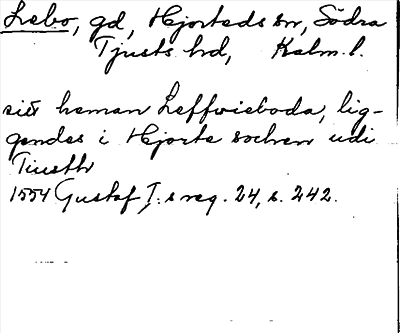 Lebo, gd, Hjorteds sn, Södra
Tjusts hd, Kalm. l.
sitt heman Leffvieboda, lig-
gendes i Hjorte sochen udi
Tiusth
1554 Gustaf I:s reg. 24, s. 242.